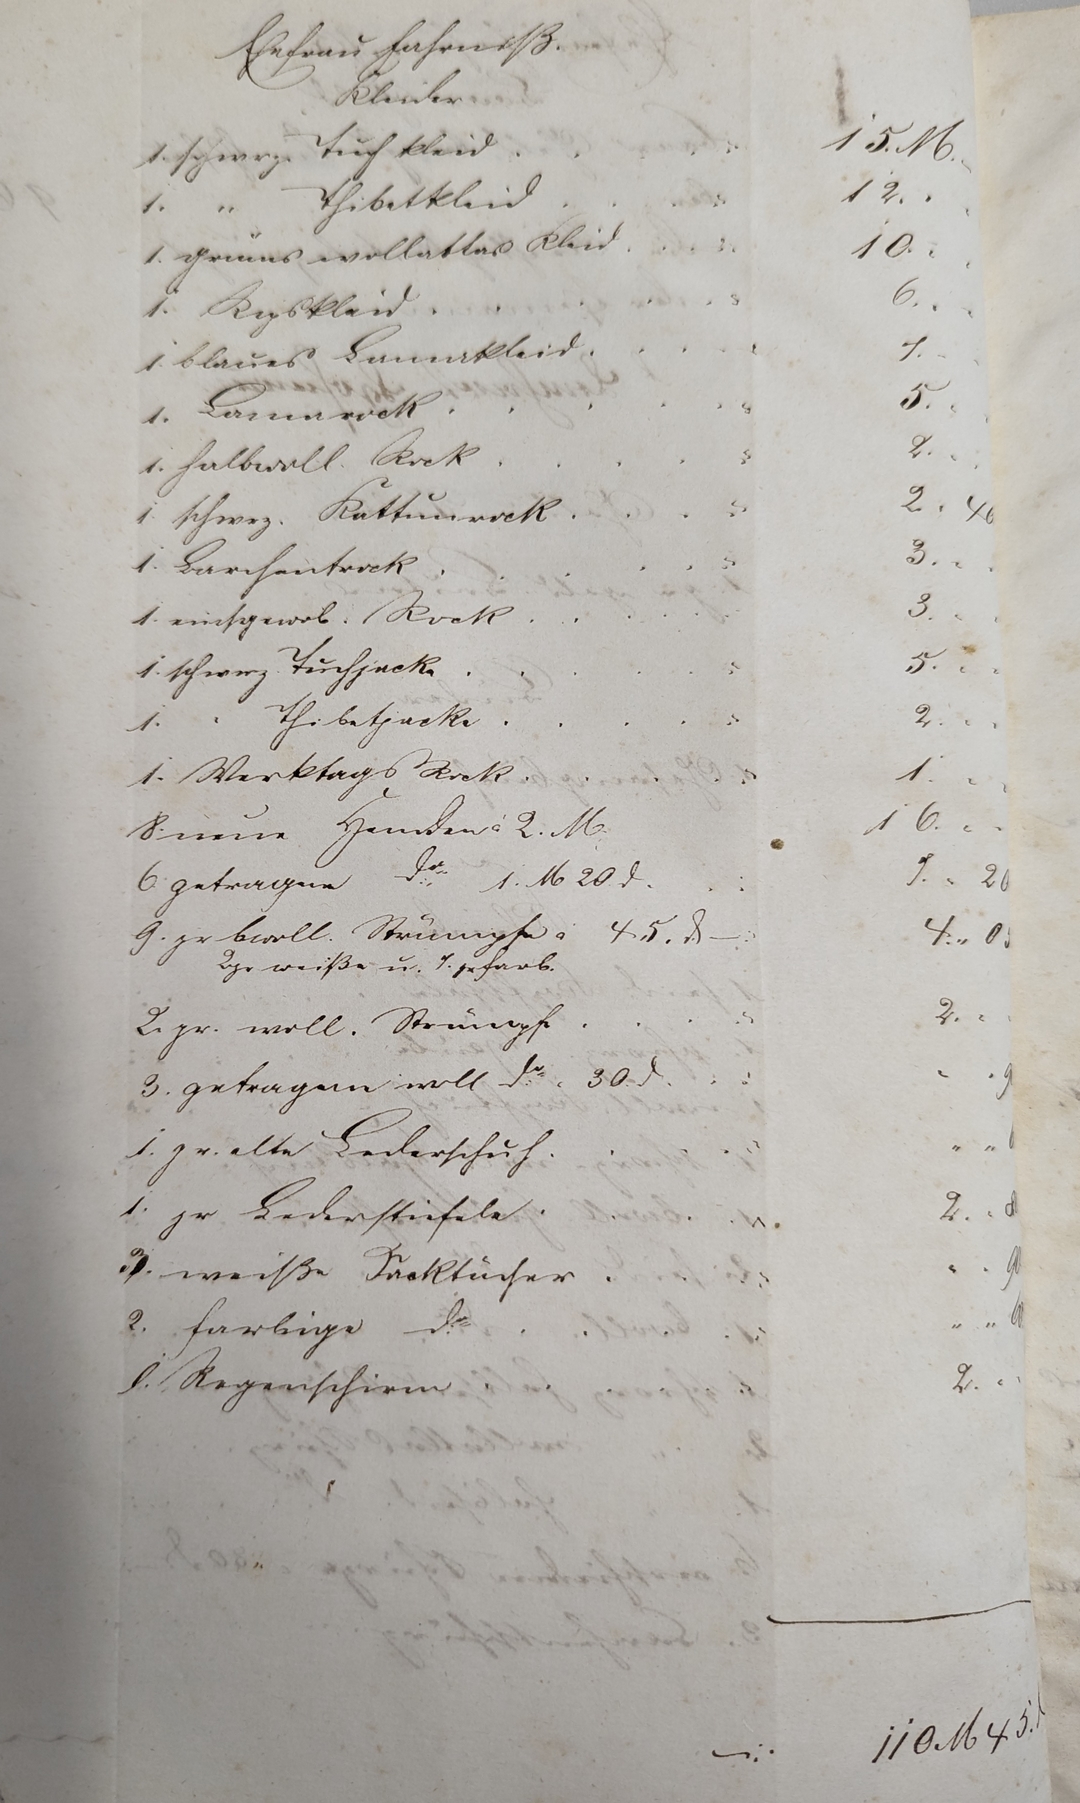 Ehefrau Fahrniß.
Kleider
1. schwrz. Tuch kleid . . . 15. M.
1. " Thibetkleid . . . 12. "
1. grünes wollattlas Kleid . . . 10. "
1. Ripskleid . . . 6. "
1. blaues Lamakleid . . . 7. "
1. Lamarock . . . 5. "
1. halbwoll. Rock . . . 2. "
1. schwrz. Kattunrock . . . 2. 40
1. Barchentrock . . . 3. "
1. Rock . . . 3. "
1. schwrz. Tuchjacke . . . 5. "
1. " Thibetjacke . . . 2. "
1. Werktags Rock . . . 1. "
8. neue Hemden à 2. M. 16. "
6 getragene do. 1. M 20 d. . . 7. " 20
9. pr bwoll. Strümpfe à 45. d. 4. " 05
2 pr weiße u. 7. pr farb.
2. pr. woll. Strümpfe . . . 2. "
3. getragene woll do. à 30 d. . . " . 9
1. pr. alte Lederschuh. . . " "
1. pr Lederstiefele . . . 2. " 8
3. weiße Sacktücher . . " . 90
2. farbige do. . . " "
1. Regenschirm . . 2. "
110. M 45. d